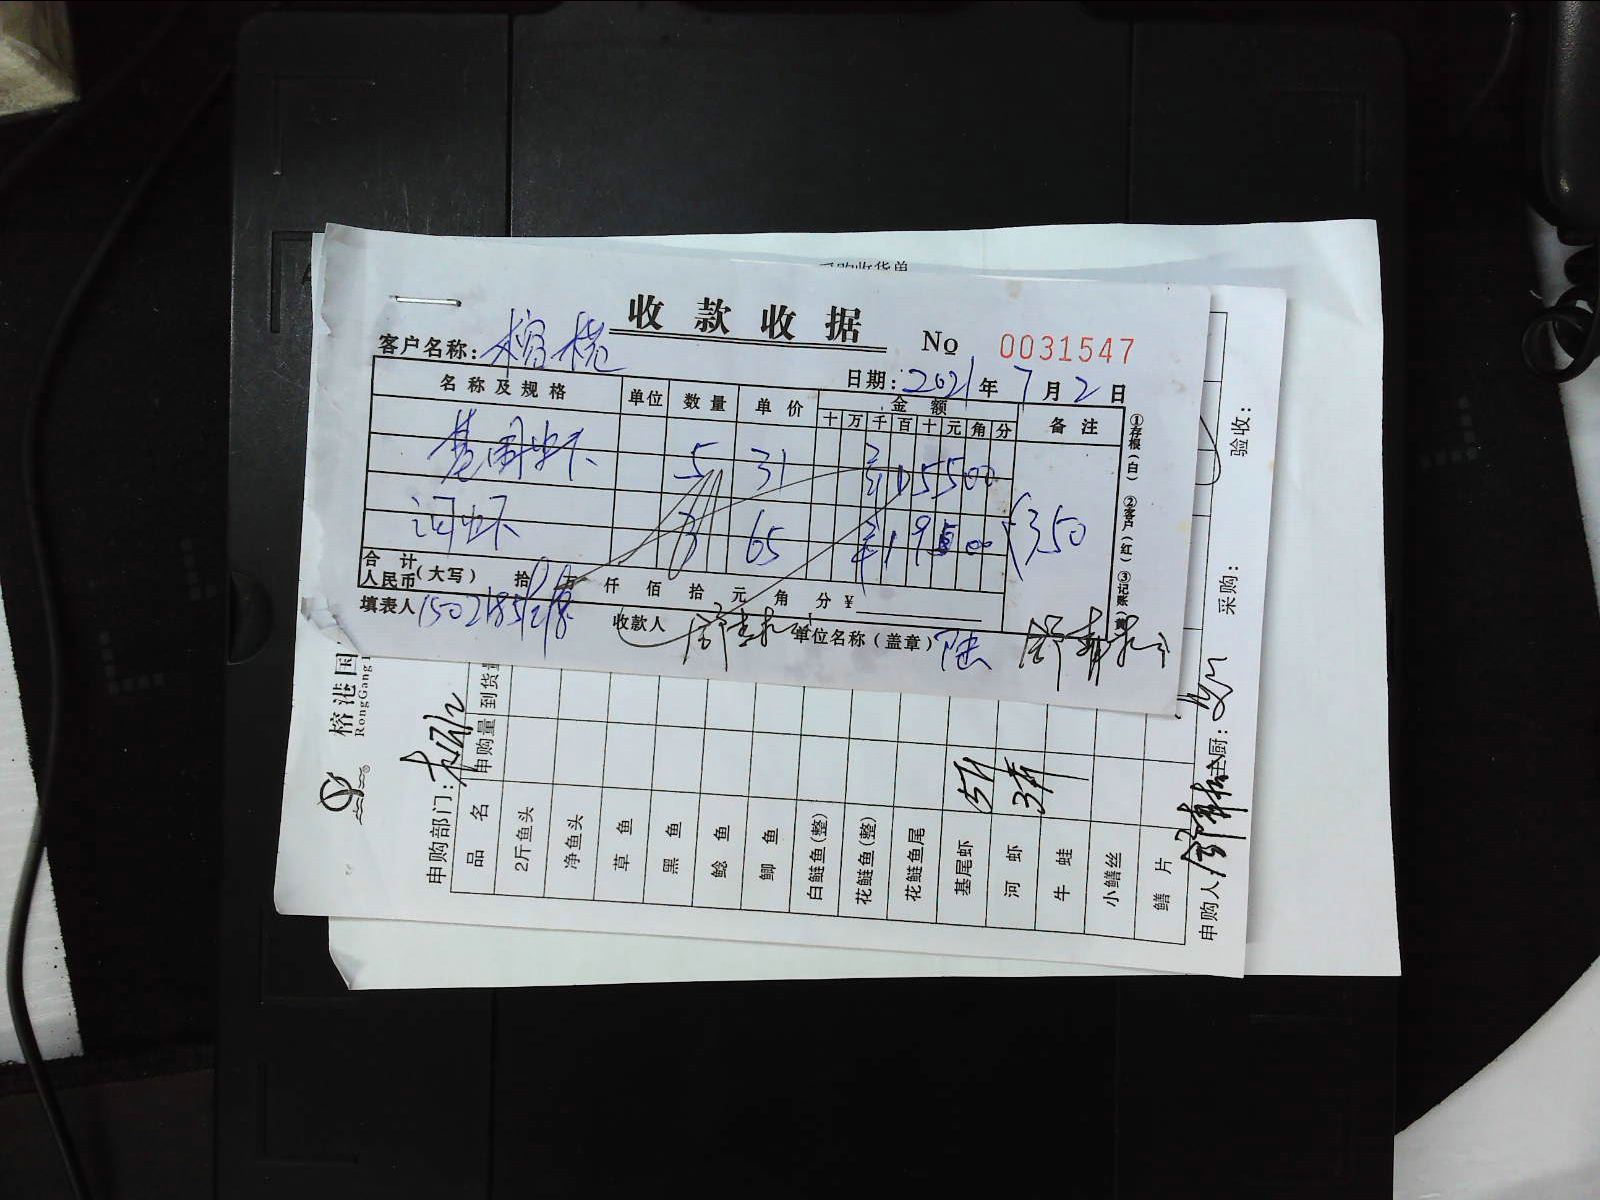 收款收据
No 0031547
客户名称：榕港
日期：2021年7月2日
名称及规格 单位 数量 单价 金额 备注
十 万 千 百 十 元 角 分
基围虾 5 31 ¥155 00
河虾 3 65 ¥195 00
350
合计人民币（大写） 拾 万 仟 佰 拾 元 角 分 ¥
填表人
收款人
单位名称（盖章）
①存根（白） ②客户（红） ③记账
榕港国
RongGang
申购部门：
品名 申购量 到货量
2斤鱼头
净鱼头
草鱼
黑鱼
鲶鱼
鲫鱼
白鲢鱼(整)
花鲢鱼(整)
花鲢鱼尾
基尾虾 5斤
河虾 3斤
牛蛙
小鳝丝
鳝片
申购人
主厨：
采购：
验收：